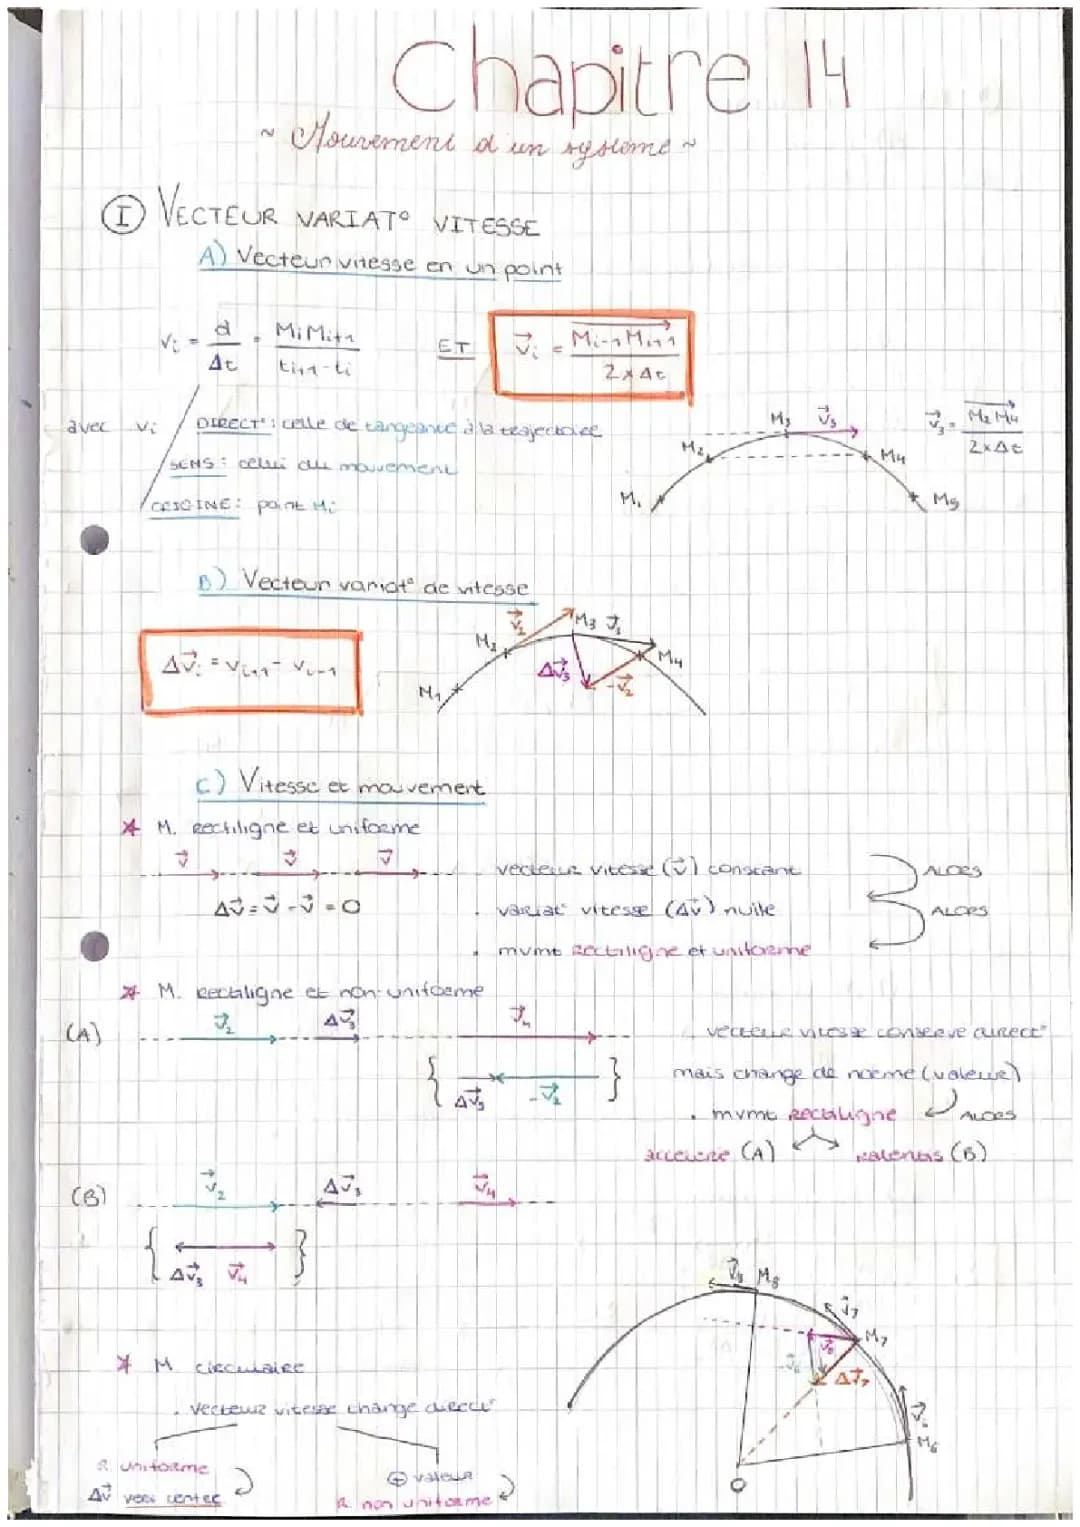 Chapitre 14
~ Mouvement d'un système ~
I VECTEUR VARIAT° VITESSE
A) Vecteur vitesse en un point
Vi = d/Δt = MiMi+1/ti+1-ti ET V⃗i = Mi-1Mi+1/2×Δt
avec Vi
DIRECT°: celle de tangeance à la trajectoire
SENS: celui du mouvement
ORIGINE: point Mi
M1 M2 M3 V⃗3 M4 M5
V⃗3 = M2M4/2×Δt
B) Vecteur variat° de vitesse
ΔV⃗i = Vi+1 - Vi-1
M1 M2 V⃗2 M3 M4 ΔV⃗3 -V⃗2
C) Vitesse et mouvement
* M. Rectiligne et uniforme
V⃗ V⃗ V⃗
ΔV⃗ = V⃗ - V⃗ = 0
. vecteur vitesse (V⃗) constant
ALORS
. variat° vitesse (ΔV⃗) nulle
ALORS
. mvmt rectiligne et uniforme
* M. Rectiligne et non-uniforme
(A) V⃗2 ΔV⃗3 V⃗4
{ ΔV⃗3 -V⃗2 }
. vecteur vitesse conserve direct°
mais change de norme (valeur)
. mvmt rectiligne ALORS
accéléré (A) ralentis (B)
(B) V⃗2 ΔV⃗3 V⃗4
{ ΔV⃗3 V⃗4 }
* M. circulaire
. Vecteur vitesse change direct°
R uniforme
ΔV⃗ vers centre
⊕ valeur
R non uniforme
V⃗8 M8
V⃗7 M7
V⃗8 -V⃗6 ΔV⃗7
V⃗6 M6
O